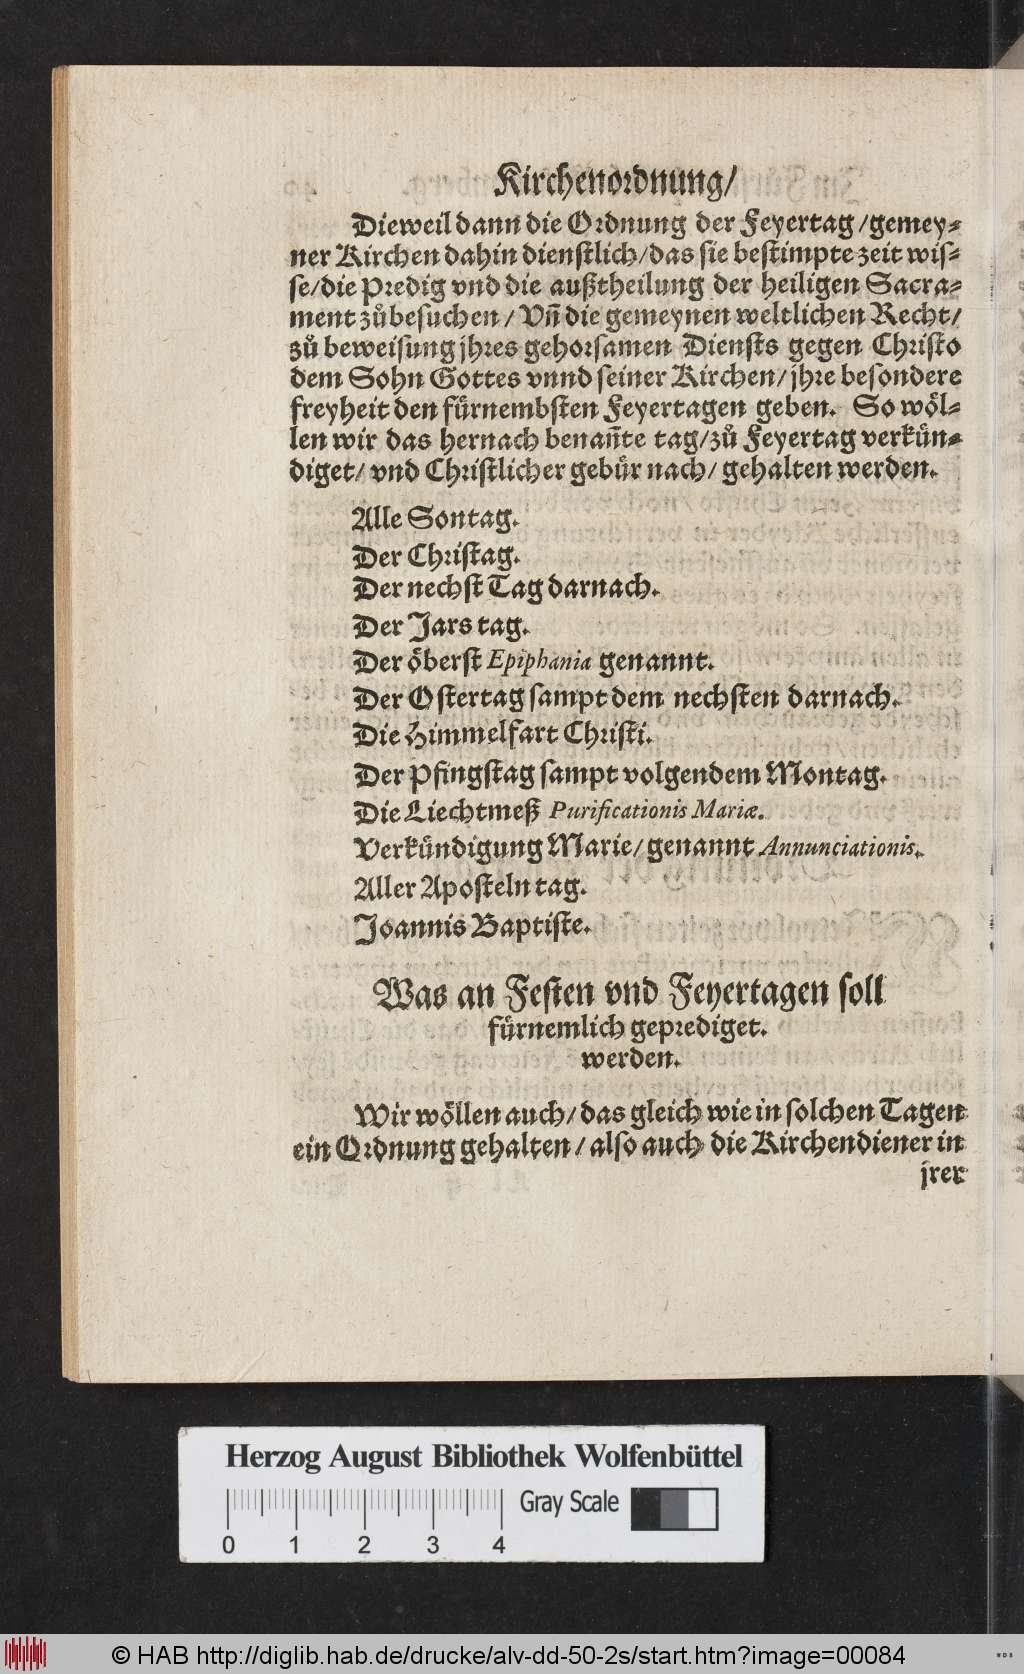 Kirchenordnung/
Dieweil dann die Ordnung der Feyertag/gemey-
ner Kirchen dahin dienstlich/das sie bestimpte zeit wis-
se/die Predig vnd die außtheilung der heiligen Sacra-
ment zůbesuchen/Vñ die gemeynen weltlichen Recht/
zů beweisung jhres gehorsamen Diensts gegen Christo
dem Sohn Gottes vnnd seiner Kirchen/jhre besondere
freyheit den fürnembsten Feyertagen geben. So wöl-
len wir das hernach benañte tag/zů Feyertag verkün-
diget/vnd Christlicher gebür nach/gehalten werden.
Alle Sontag.
Der Christag.
Der nechst Tag darnach.
Der Jars tag.
Der öberst Epiphania genannt.
Der Ostertag sampt dem nechsten darnach.
Die Himmelfart Christi.
Der Pfingstag sampt volgendem Montag.
Die Liechtmeß Purificationis Mariæ.
Verkündigung Marie/genannt Annunciationis.
Aller Aposteln tag.
Joannis Baptiste.
Was an Festen vnd Feyertagen soll
fürnemlich geprediget.
werden.
Wir wöllen auch/das gleich wie in solchen Tagen
ein Ordnung gehalten/also auch die Kirchendiener in
jrer
Herzog August Bibliothek Wolfenbüttel
Gray Scale
0 1 2 3 4
© HAB http://diglib.hab.de/drucke/alv-dd-50-2s/start.htm?image=00084